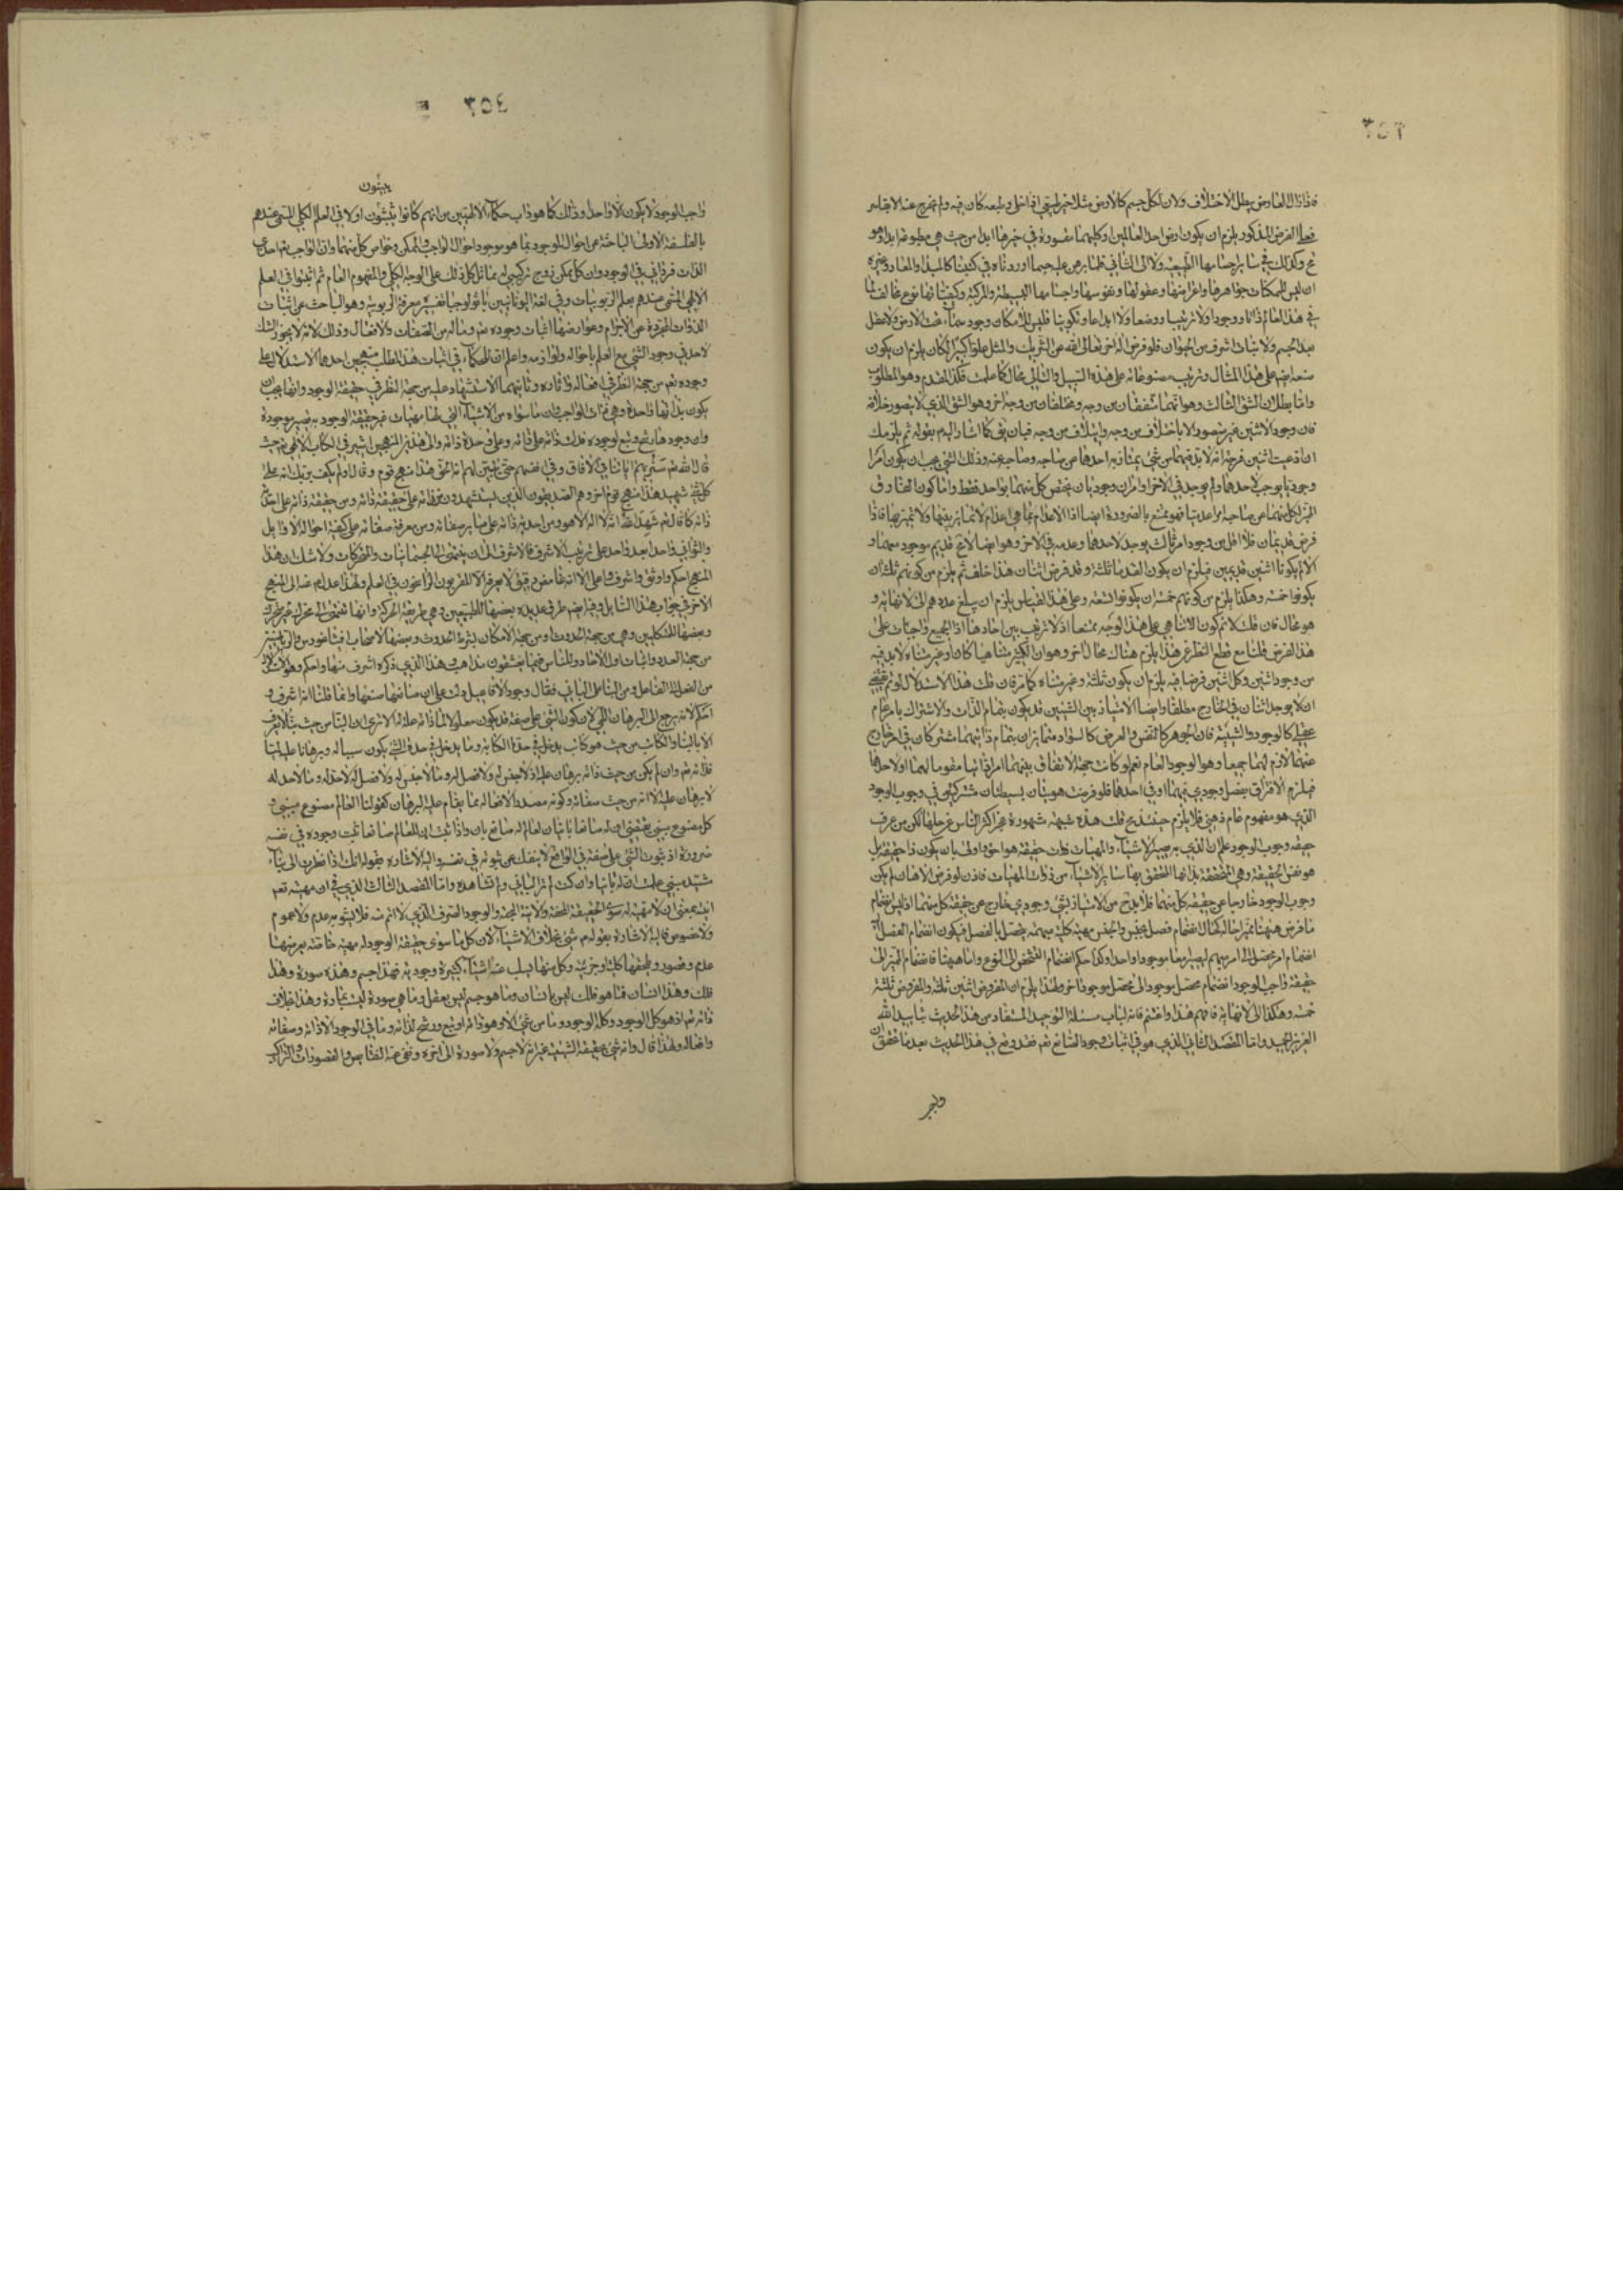 ٣٥٣
فاذا زال العارض بطل الاختلاف ولان لكل جسم كالارض مثلا حيز طبيعي اذا خلى وطبعه كان فيه ولم يخرج عنه الا بقاسر
فعلى الفرض المذكور يلزم ان يكون ارض احد العالمين او كليهما مقسورة في حيزها ابدا من حيث هي مطبوعة ابدا وهو
في هذا العالم ذاتا ووجودا ولا ترتيبا ووضعا ولا ابداعا وتكوينا فليس للامكان وجود سماء تحت الارض ولا عقل
بعد الجسم ولا نبات اشرف من الحيوان فلو فرض اله اخر تعالى الله عن الشريك والمثل علوا كبيرا لكان يلزم ان يكون
صنعه ايضا على هذا المثال وترتيب مصنوعاته على هذه السبيل والتالي محال كما علمت فكذا المقدم وهو المطلوب
واما بطلان الشق الثالث وهو انهما متفقان من وجه ومختلفان من وجه اخر وهو الشق الذي لا يتصور خلافه
فان وجود الاثنين غير متصور الا باختلاف من وجه وايتلاف من وجه فبيان نفيه كما اشار اليه بقوله ثم يلزمك
ان ادعيت اثنين فرجة انه لا بد فيهما من شيء يمتاز به احدهما عن صاحبه وصاحبه عنه وذلك الشيء يجب ان يكون امرا
وجوديا يوجد لاحدهما ولم يوجد في الاخر او امران وجوديان يختص كل منهما بواحد فقط واما كون الفارق
المميز لكل منهما عن صاحبه امرا عدميا فهو ممتنع بالضرورة ايضا اذ الاعدام بما هي اعدام لا تمايز بينها ولا تميز بها فاذا
فرض قديمان فلا اقل من وجود امر ثالث يوجد لاحدهما وعدمه في الاخر وهو ايضا لا مح قديم موجود معهما و
الا لم يكونا اثنين قديمين فيلزم ان يكون القدماء ثلثة وقد فرض اثنان هذا خلف ثم يلزم من كونهم ثلثة ان
يكونوا خمسة وهكذا يلزم من كونهم خمسة ان يكونوا تسعة وعلى هذا القياس يلزم ان يبلغ عددهم الى لا نهاية و
هو محال فان قلت لا نم كون اللاتناهي على هذا الوجه ممتنعا اذ لا ترتيب بين احادها اذ الجميع واجبات على
هذا الفرض قلنا مع قطع النظر عن هذا يلزم هناك محال اخر وهو ان الكثير متناهيا كان او غير متناه لا بد فيه
من وجود اثنين وكل اثنين فرضا فيه يلزم ان يكون ثلثة وغير متناه كما مر فان قلت هذا الاستدلال لو تم يقتضي
ان لا يوجد اثنان في الخارج مطلقا وايضا الامتياز بين الشيئين قد يكون بتمام الذات والاشتراك بامر عام
عقلي كالوجود والشيئية فان الجوهر كالنفس والعرض كالسواد متمايزان بتمام ذاتيهما مشتركان في امر خارج
عنهما لازم لهما جميعا وهو الوجود العام نعم لو كانت جهة الاتفاق بينهما امرا ذاتيا مقوما لهما او لاحدهما
فيلزم الافتراق بفصل وجودي فيهما او في احدهما فلو فرضت هويتان بسيطتان مشتركتين في وجوب الوجود
الذي هو مفهوم عام ذهني فلا يلزم حينئذ مح قلت هذه شبهة مشهورة عجز اكثر الناس عن حلها لكن من عرف
حقيقة وجوب الوجود علم ان الذي به يصير الاشياء والمهيات ذات حقيقة هو احق واولى بان يكون ذا حقيقة بل
هو نفس الحقيقة وهي المتحققة بذاتها المتحقق بها ساير الاشياء من ذوات المهيات فاذن لو فرض الاهان لم يكن
وجوب الوجود خارجا عن حقيقة كل منهما فلا بد ح من الامتياز بشيء وجودي خارج عن حقيقة كل منهما اذ ليس انضمام
ما فرض هيهنا مميزا حاله كحال انضمام فصل بجنس والجنس مهية كلية مبهمة يتحصل بالفصل فيكون انضمام الفصل اليه
انضمام امر محصل الى امر مبهم ليصير معا موجودا واحدا وكذا حكم انضمام التشخص الى النوع واما هيهنا فانضمام المميز الى
حقيقة واجب الوجود انضمام محصل موجود الى محصل موجود اخر ولهذا يلزم ان المفروض اثنين ثلثة والمفروض ثلثة
خمسة وهكذا الى لا نهاية فافهم هذا واغتنم فانه لباب مسئلة التوحيد المستفاد من هذا الحديث بتاييد الله
العزيز الحميد واما المقصد الثاني الذي هو في اثبات وجود الصانع تعم فقد وقع في هذا الحديث بعد ما تحقق ان
٣٥٤
يبينون
واجب الوجود لا يكون الا واحدا وذلك كما هو داب حكماء الالهيين من انهم كانوا يثبتون اولا في العلم الكلي المسمى عندهم
بالفلسفة الاولى الباحثة عن احوال الموجود بما هو موجود احوال الواجب والممكن وخواص كل منهما وان الواجب تعم احدي
الذات فرداني في الوجود وان كل ممكن زوج تركيبي له مماثل كل ذلك على الوجه الكلي والمفهوم العام ثم اثبتوا في العلم
الالهي المسمى عندهم بعلم الربوبيات وفي لغة اليونانيين باثولوجيا تفسيره معرفة الربوبية وهو الباحث عن اثبات
الذوات المجردة عن الاجرام وعوارضها اثبات وجوده تعم وماله من الصفات والافعال وذلك لانه لا يجوز الشك
لاحد في وجود الشيء مع العلم باحواله ولوازمه واعلم ان للحكماء في اثبات هذا المطلب منهجين احدهما الاستدلال على
وجوده تعم من جهة النظر في افعاله واثاره وثانيهما الاستشهاد عليه من جهة النظر في حقيقة الوجود وانها يجب ان
يكون بذاتها واحدة وهي ذات الواجب وان ما سواه من الاشياء التي لها مهيات غير حقيقة الوجود به يصير موجودة
وان وجودها رشح وتبع لوجوده فدلت ذاته على ذاته وعلى وحدة ذاته والى هذين المنهجين اشير في الكتاب الالهي حيث
قال الله تعم سنريهم اياتنا في الافاق وفي انفسهم حتى يتبين لهم انه الحق هذا منهج قوم وقال اولم يكف بربك انه على
كل شيء شهيد هذا منهج قوم اخر وهم الصديقون الذين يستشهدون من ذاته على حقيقة ذاته ومن حقيقة ذاته على احدية
ذاته كما قال تعم شهد الله انه لا اله الا هو ومن احدية ذاته على ساير صفاته ومن معرفة صفاته على كيفية احواله الاوايل
والثواني واحدا بعد واحد على ترتيب الاشرف فالاشرف الى ان ينتهي الى الجسمانيات والمتحركات ولا شك ان هذا
المنهج احكم واوثق واشرف واعلى الا انه غامض دقيق لا يعرفه الا المقربون الراسخون في العلم ولهذا عدل عنه الى المنهج
الاخر في جواب هذا السايل وفيه ايضا طرق عديدة بعضها للطبيعيين وهي طريقة الحركة وانها تنتهي الى محرك غير متحرك
وبعضها للمتكلمين وهي من جهة الحدوث ومن جهة الامكان بشرط الحدوث وبعضها لاصحاب فيثاغورس
من جهة العدد واثبات اول الاحاد وللناس فيما يعشقون مذاهب وهذا الذي ذكره اشرف منها واحكم وهو الاستدلال
من الفعل الى الفاعل ومن البناء على الباني فقال وجود الافاعيل دلت على ان صانعا صنعها وانما قلنا انه اشرف و
احكم لانه يرجع الى البرهان اللمي لان كون الشيء على صفة قد يكون معلولا لما ذاته علة له الا ترى ان البناء من حيث بناء لا يعرف
الا بالبناء والكاتب من حيث هو كاتب يدخل في حده الكتابة وما يدخل في حد الشيء يكون سببا له وبرهانا عليه لما
فذاته تعم وان لم يكن من حيث ذاته برهان عليه اذ لا جنس له ولا فصل له وما لا جنس له ولا فصل له لا حد له وما لا حد له
لا برهان عليه الا انه من حيث صفاته وكونه مصدرا لافعاله مما يقام عليه البرهان كقولنا العالم مصنوع مبني و
كل مصنوع مبني يقتضي ان له صانعا بانيا فان العالم له صانع بان واذا ثبت ان للعالم صانعا ثبت وجوده في نفسه
ضرورة اذ ثبوت الشيء على صفة في الواقع لا ينفك عن ثبوته في نفسه واليه الاشارة بقوله انك اذا نظرت الى بناء
مشيد مبني علمت ان له بانيا وان كنت لم تر الباني ولم تشاهده واما المقصد الثالث الذي في ان مهيته تعم
انيته بمعنى ان لا مهية له سوى الحقيقة المحضة والانية البحتة والوجود الصرف الذي لا اتم منه فلا يشوبه عدم ولا عموم
ولا خصوص فاليه الاشارة بقوله ع شيء بخلاف الاشياء لان كل ما سوى حقيقة الوجود له مهية خاصة يعرضها
عدم وقصور ويلحقها كلية وجزئية وكل منها يسلب عنه اشياء كثيرة وجودية فهذا جسم وهذه صورة وهذا
فلك وهذا انسان فما هو فلك ليس بانسان وما هو جسم ليس بعقل وما هي صورة ليست بمادة وهذا بخلاف
ذاته تعم اذ هو كل الوجود وكله الوجود وما من شيء الا وهو ذاته او تبع ورشح لذاته وما في الوجود الا ذاته وصفاته
وافعاله ولهذا قال وانه شيء بحقيقة الشيئية غير انه لا جسم ولا صورة الى اخره ونفى عنه النقايص والقصورات